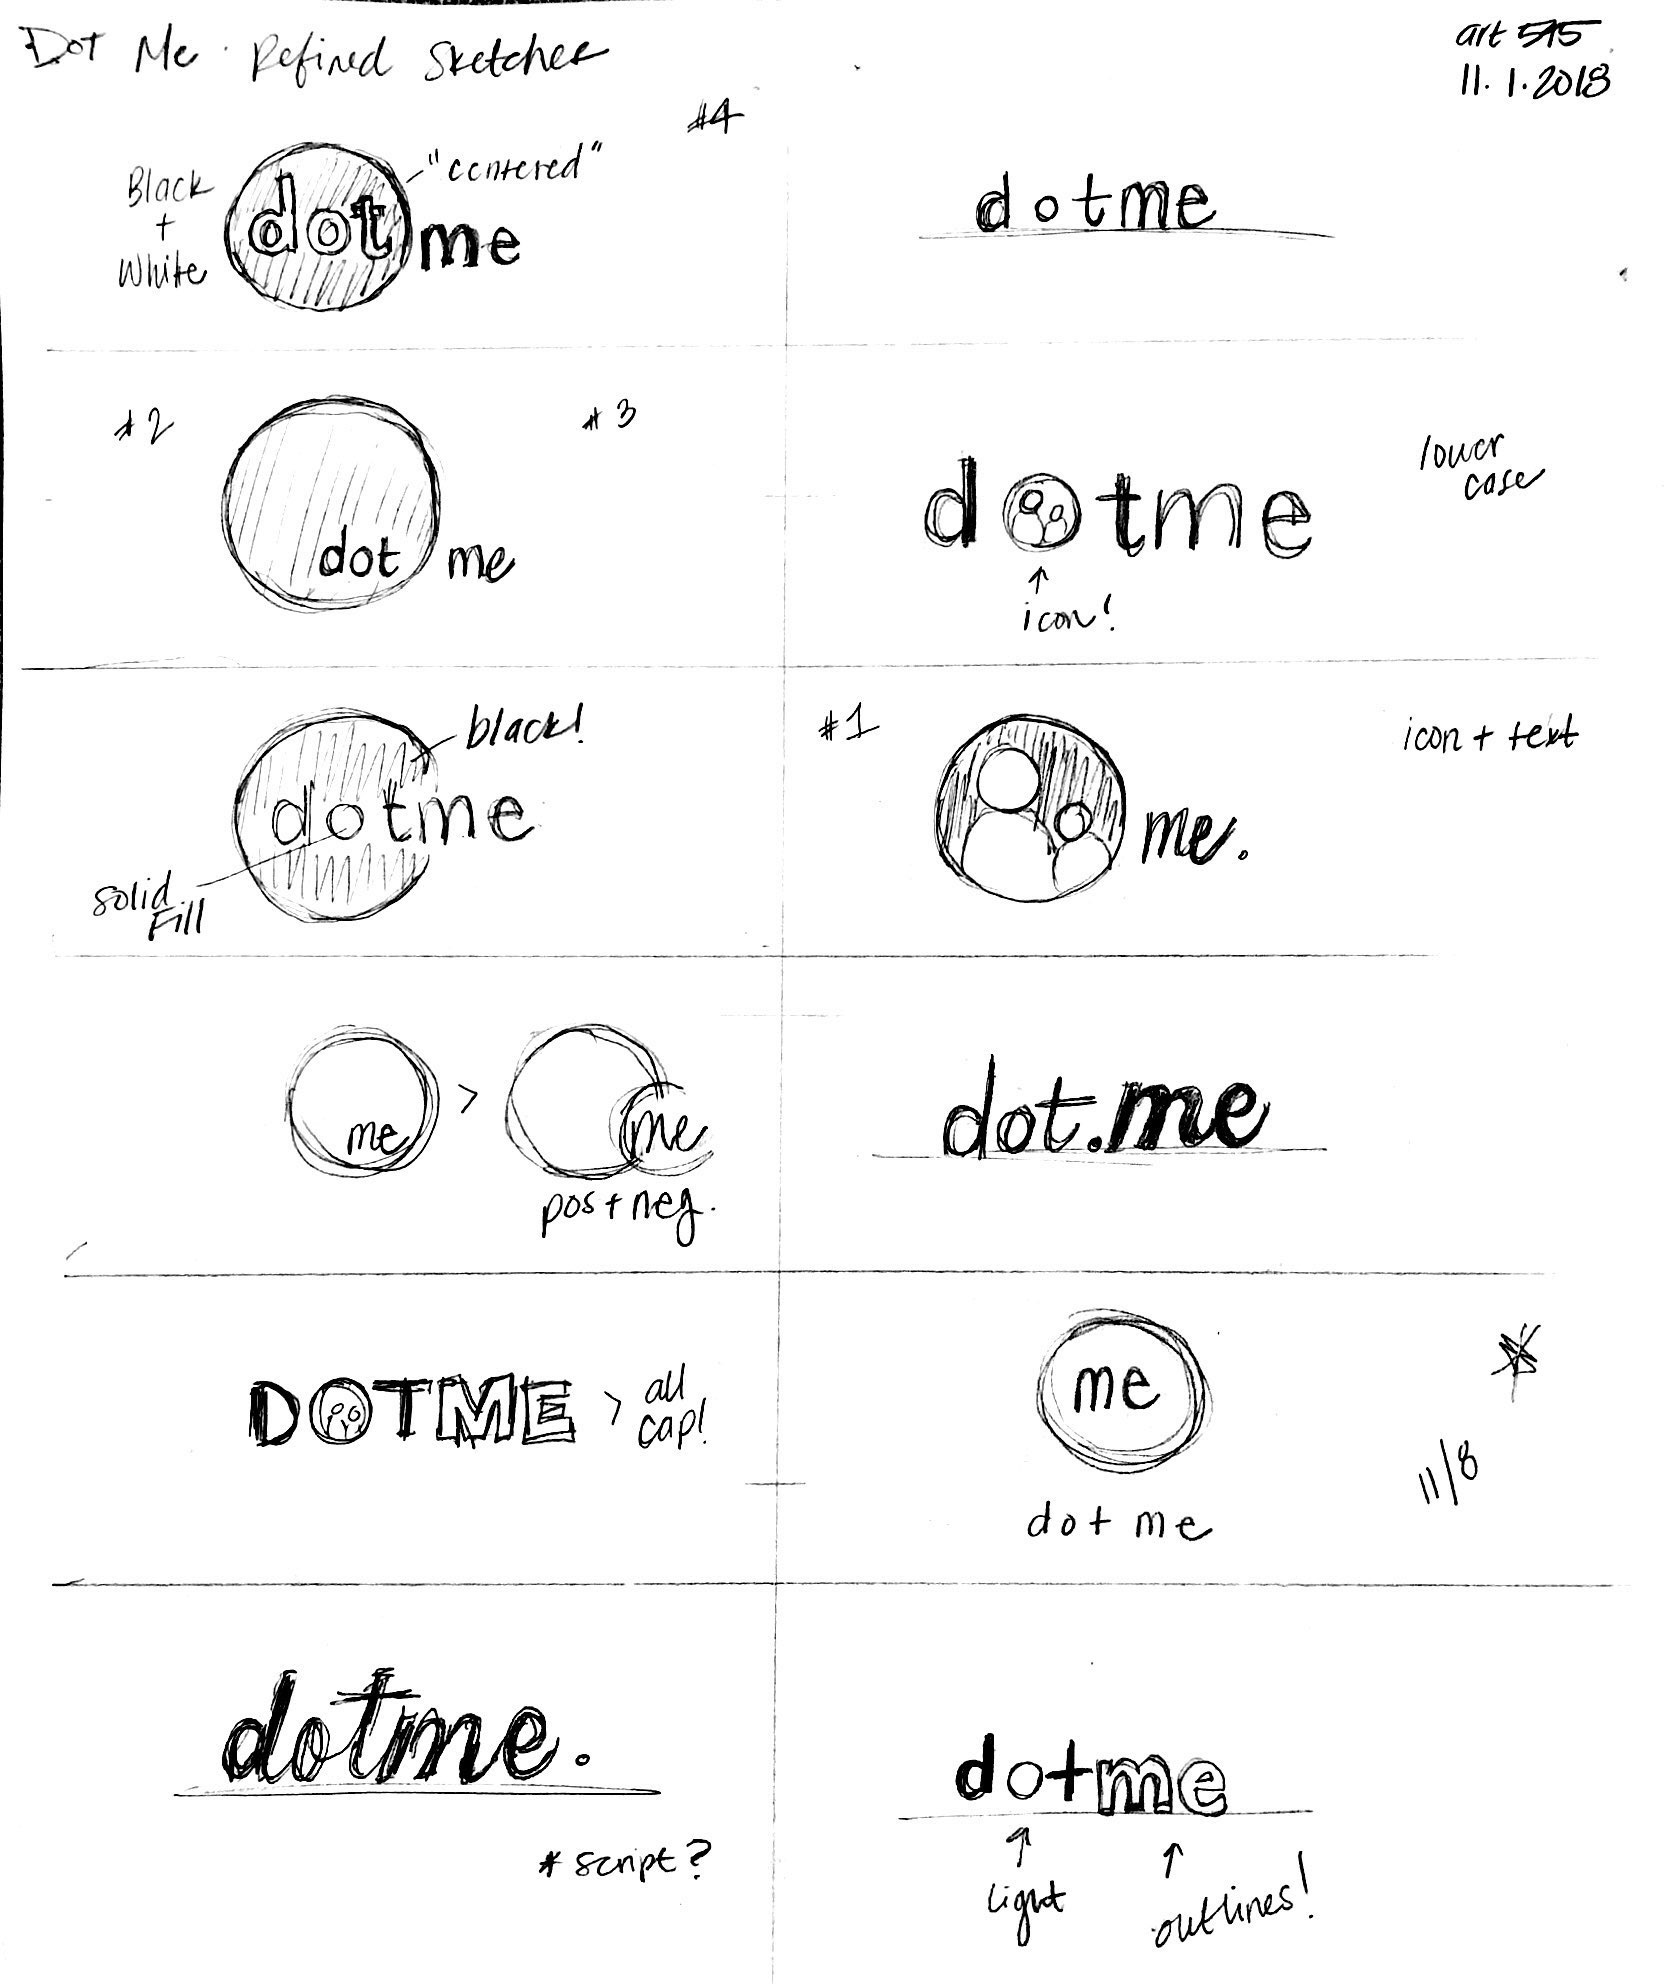 Dot Me. Refined Sketches
art 545
11.1.2018
#4
Black
+
White
"centered"
dot me
dotme
#2
#3
dot me
dotme
lower
case
icon!
black!
dotme
solid
Fill
#1
me.
icon + text
me > me
pos + neg.
dot.me
DOTME > all
cap!
me
dot me
*
11/8
dotme.
* script?
dotme
light
outlines!